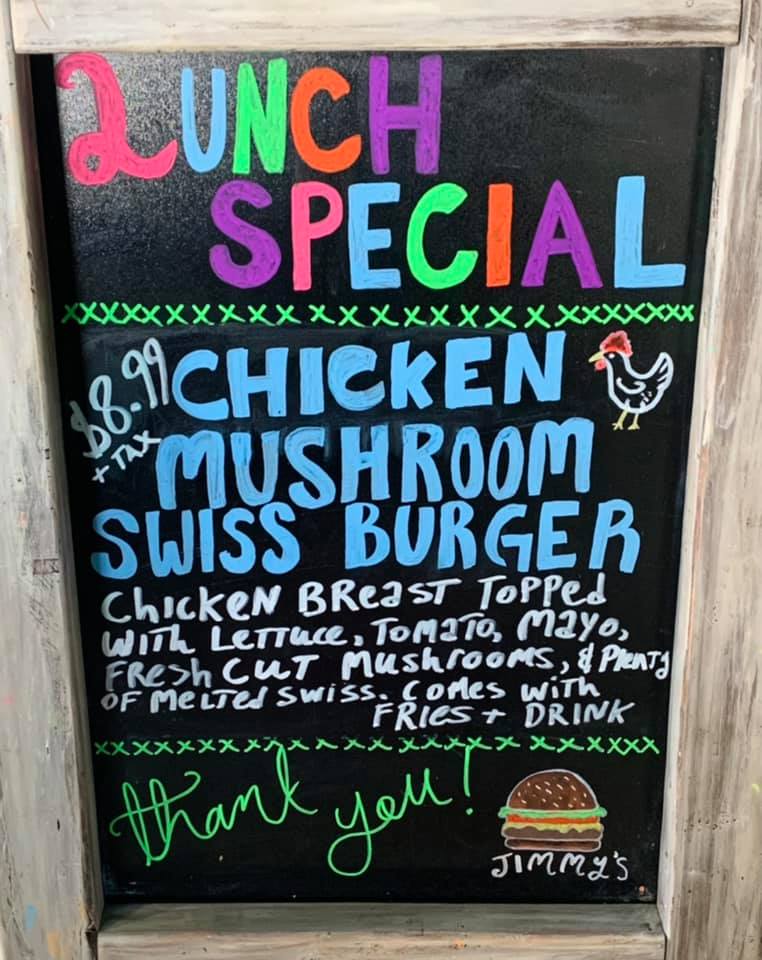 LUNCH
SPECIAL
$8.99
+ TAX
CHICKEN
MUSHROOM
SWISS BURGER
CHICKEN BREAST TOPPED
WITH LETTUCE, TOMATO, MAYO,
FRESH CUT MUSHROOMS, & PLENTY
OF MELTED SWISS. COMES WITH
FRIES + DRINK
thank you!
JIMMY'S